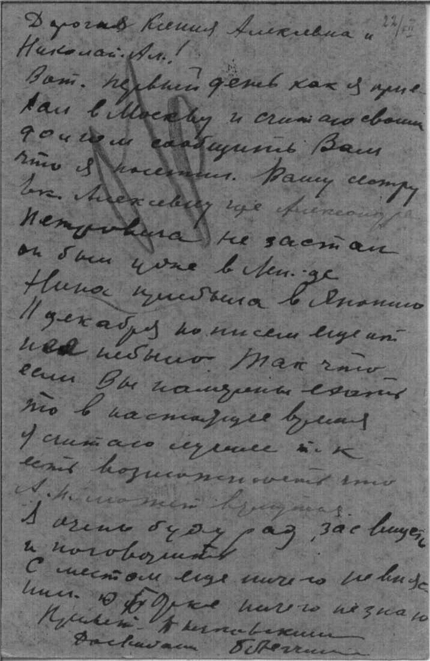 22/XII
Дорогая Ксения Алексеевна и
Николай Ал.!
Вот. первый день как я прие-
хал в Москву и считаю своим
долгом сообщить Вам
что я посетил. Вашу сестру
Алексеевну где Александра
Петровича не застал
он был уже в Лен-де
Нина прибыла в Японию
11 декабря но писем еще от
нея небыло. Так что
если Вы намерены ехать
то в настоящее время
я считаю лучшее т.к
есть возможность что
А.П. может вернутся.
Я очень буду рад вас видеть
и поговорить
С местом еще ничего не
о Борке ничего незнаю
Привет
Досвидания